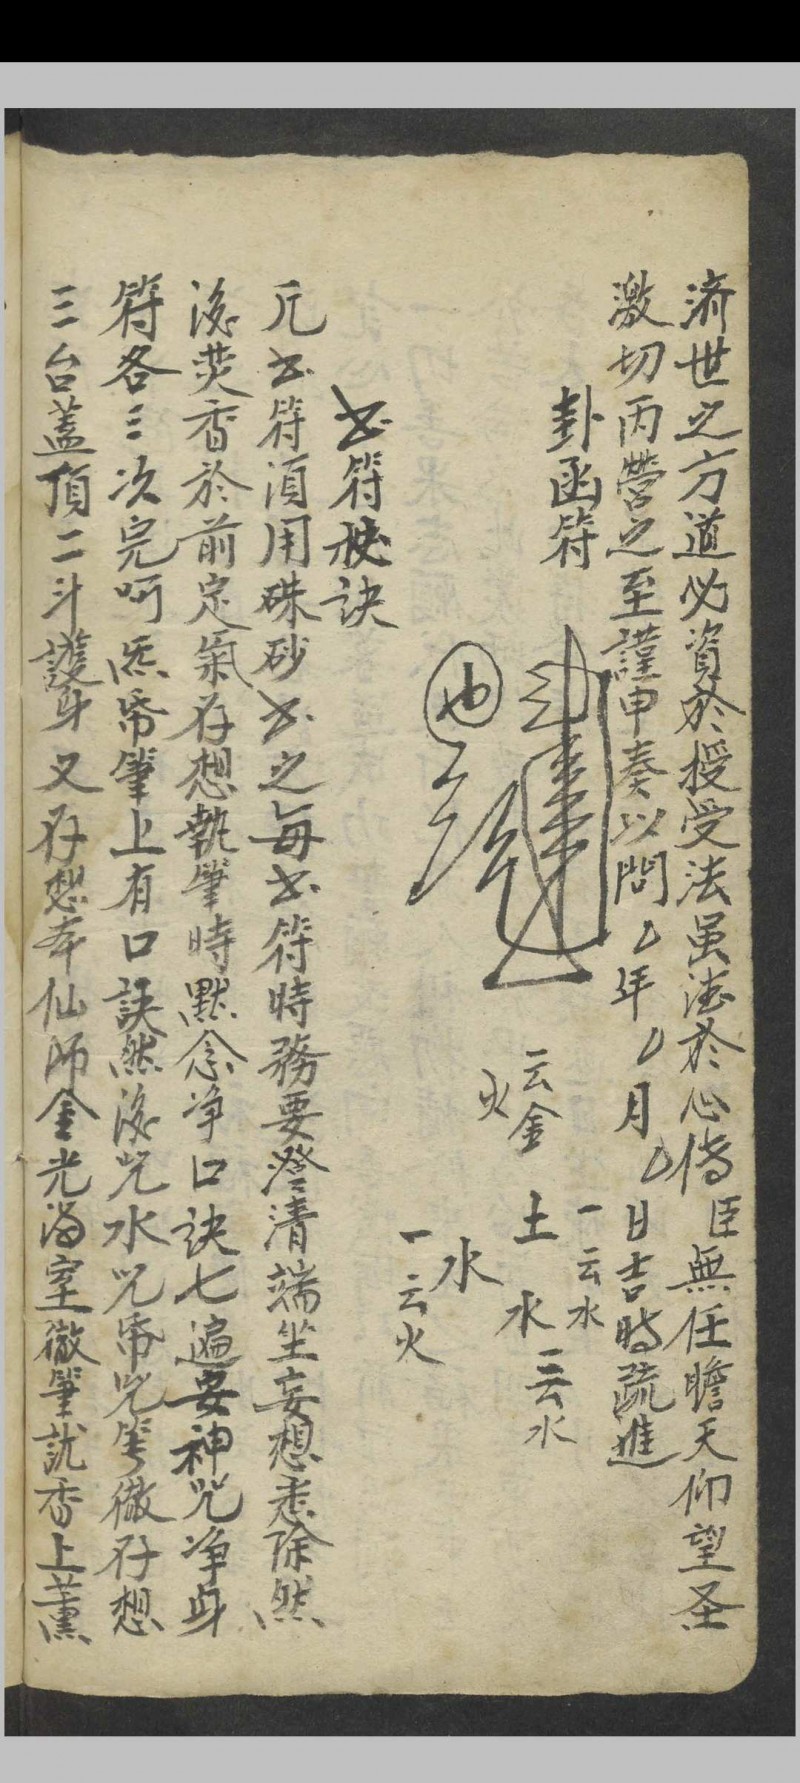 済世之方道必資於授受法虽法於心傳臣無任瞻天仰望圣
激切丙營之至謹申奏以問 年 月 日吉時疏進
卦函符
云金 土 一云水
火 水 二云水
水
一云火
书符秘訣
凡书符須用硃砂书之每书符時務要澄清端坐妄想悉除然
後焚香於前定氣存想執筆時默念净口訣七遍安神咒净身
符各三次完呵炁帋筆上有口訣然後咒水咒帋咒筆徹存想
三台蓋頂二斗護身又存想本仙師金光滿室徹筆就香上薰